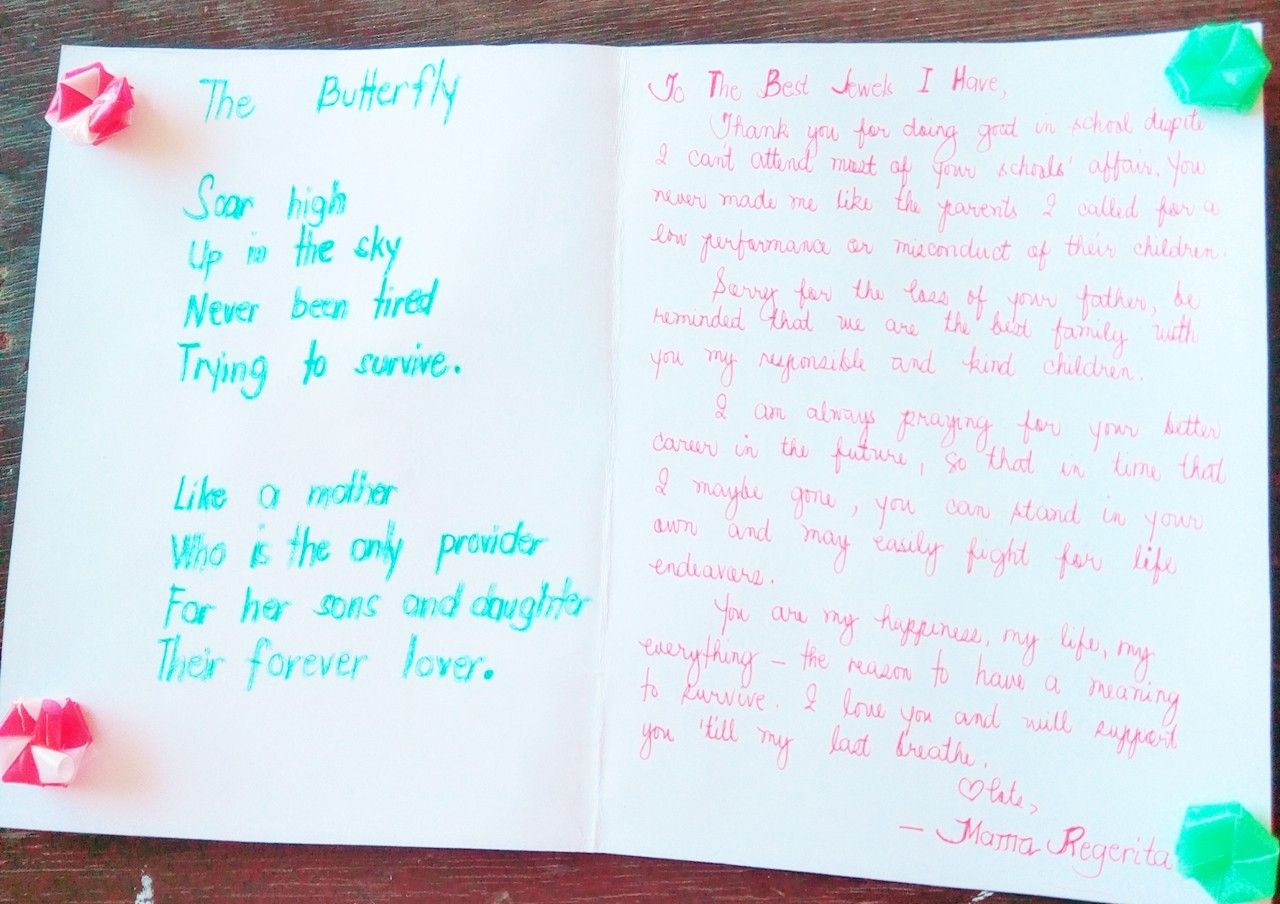 The Butterfly
Soar high
Up in the sky
Never been tired
Trying to survive.
Like a mother
Who is the only provider
For her sons and daughter
Their forever lover.
To The Best Jewels I Have,
Thank you for doing good in school despite
I can't attend most of your schools' affair. You
never made me like the parents I called for a
low performance or misconduct of their children.
Sorry for the loss of your father, be
reminded that we are the best family with
you my responsible and kind children.
I am always praying for your better
career in the future, so that in time that
I maybe gone, you can stand in your
own and may easily fight for life
endeavors.
You are my happiness, my life, my
everything – the reason to have a meaning
to survive. I love you and will support
you 'till my last breathe.
♡lots,
— Mama Regerita